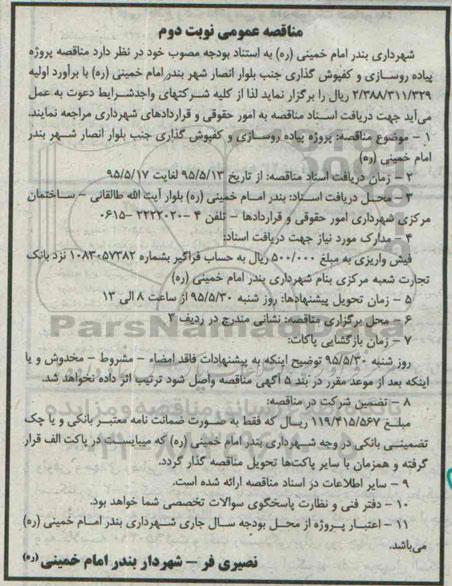 مناقصه عمومی نوبت دوم
شهرداری بندر امام خمینی (ره) به استناد بودجه مصوب خود در نظر دارد مناقصه پروژه
پیاده روسازی و کفپوش گذاری جنب بلوار انصار شهر بندر امام خمینی (ره) با برآورد اولیه
۲/۳۸۸/۳۱۱/۳۲۹ ریال را برگزار نماید لذا از کلیه شرکتهای واجدشرایط دعوت به عمل
می‌آید جهت دریافت اسناد مناقصه به امور حقوقی و قراردادهای شهرداری مراجعه نمایند.
۱ – موضوع مناقصه: پروژه پیاده روسازی و کفپوش گذاری جنب بلوار انصار شهر بندر
امام خمینی (ره)
۲ – زمان دریافت اسناد مناقصه: از تاریخ ۹۵/۵/۱۳ لغایت ۹۵/۵/۱۷
۳ – محل دریافت اسناد: بندر امام خمینی (ره) بلوار آیت الله طالقانی – ساختمان
مرکزی شهرداری امور حقوقی و قراردادها – تلفن ۴ –۲۲۲۲۰۲۰ –۰۶۱۵
۴ – مدارک مورد نیاز جهت دریافت اسناد:
فیش واریزی به مبلغ ۵۰۰/۰۰۰ ریال به حساب فراگیر بشماره ۱۰۸۳۰۵۷۳۸۲ نزد بانک
تجارت شعبه مرکزی بنام شهرداری بندر امام خمینی (ره)
۵ – زمان تحویل پیشنهادها: روز شنبه ۹۵/۵/۳۰ از ساعت ۸ الی ۱۳
۶ – محل برگزاری مناقصه: نشانی مندرج در ردیف ۳
۷ – زمان بازگشایی پاکات:
روز شنبه ۹۵/۵/۳۰ توضیح اینکه به پیشنهادات فاقد امضاء – مشروط – مخدوش و یا
اینکه بعد از موعد مقرر در بند ۵ آگهی مناقصه واصل شود ترتیب اثر داده نخواهد شد.
۸ – تضمین شرکت در مناقصه:
مبلغ ۱۱۹/۴۱۵/۵۶۷ ریال که فقط به صورت ضمانت نامه معتبر بانکی و یا چک
تضمینی بانکی در وجه شهرداری بندر امام خمینی (ره) که میبایست در پاکت الف قرار
گرفته و همزمان با سایر پاکت‌ها تحویل مناقصه گذار گردد.
۹ – سایر اطلاعات در اسناد مناقصه ارائه شده است.
۱۰ – دفتر فنی و نظارت پاسخگوی سوالات تخصصی شما خواهد بود.
۱۱ – اعتبار پروژه از محل بودجه سال جاری شهرداری بندر امام خمینی (ره)
می‌باشد.
نصیری فر – شهردار بندر امام خمینی (ره)
ParsNamadData